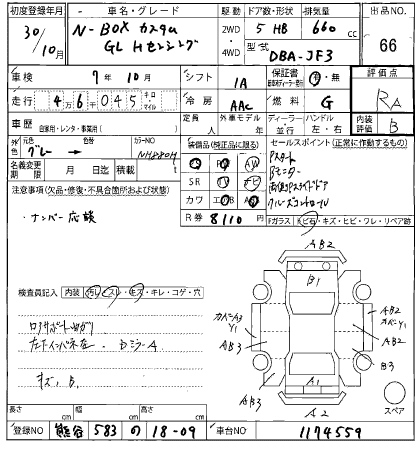 初度登録年月
30/10月
車名・グレード
N-BOX カスタム
GL Hセンシング
駆動
2WD
4WD
ドア数・形状
5 HB
排気量
660 cc
型式
DBA-JF3
出品NO.
66
車検 7年10月
シフト IA
保証書 有・無
評価点
RA
走行 4万6千045 キロ・マイル
冷房 AAC
燃料 G
車歴 自家用・レンタ・事業用( )
定員 人
外車モデル 年
ディーラー・並行
ハンドル 左・右
内装評価 B
外色 元色 グレー → 色替
カラーNO
装備品(純正品に限る)
SR TV ナビ
カワ
R券 8110 円
セールスポイント(正常に作動するもの)
Pスタート
Bモニター
両側Pスライドドア
クルーズコントロール
名義変更期限 月 日迄
積載 t
注意事項(欠品・修復・不具合箇所および状態)
・ナンバー応談
Fガラス トビ石・キズ・ヒビ・ワレ・リペア跡
検査員記入 内装 汚レ・スレ・キズ・キレ・コゲ・穴
キズ、B
AB2
B1
Y1
AB3
A1
AB3
A2
AB2
Y1
AB2
B3
スペア
長さ cm
幅 cm
高さ cm
登録NO 熊谷 583 の 18-09
車台NO 1174559